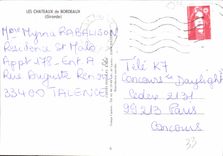 LES CHATEAUX de BORDEAUX
(Gironde)
Mme Myrna RABALISON
Residence St Malo
Appt 178 - Ent A
Rue Auguste Renoir
33400 TALENCE
Télé K7
Concours "Daylight
Cedex 2131
99213 Paris
Concours